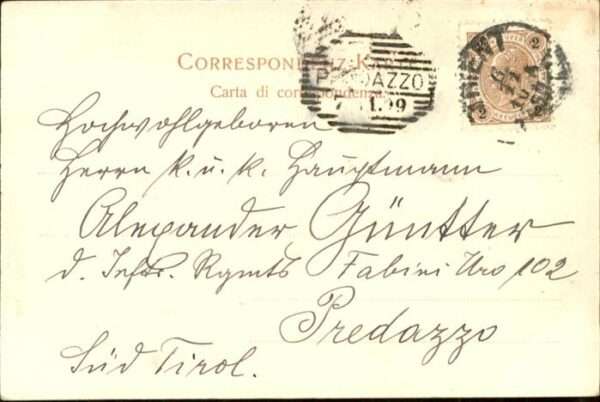 CORRESPONDENZ-KARTE
Carta di corrispondenza
PREDAZZO
99
TRIENT
Hochwohlgeboren
Herrn k. u. k. Hauptmann
Alexander Güntter
d. Inftr. Rgmts Fabini Nro 102
Predazzo
Süd Tirol.